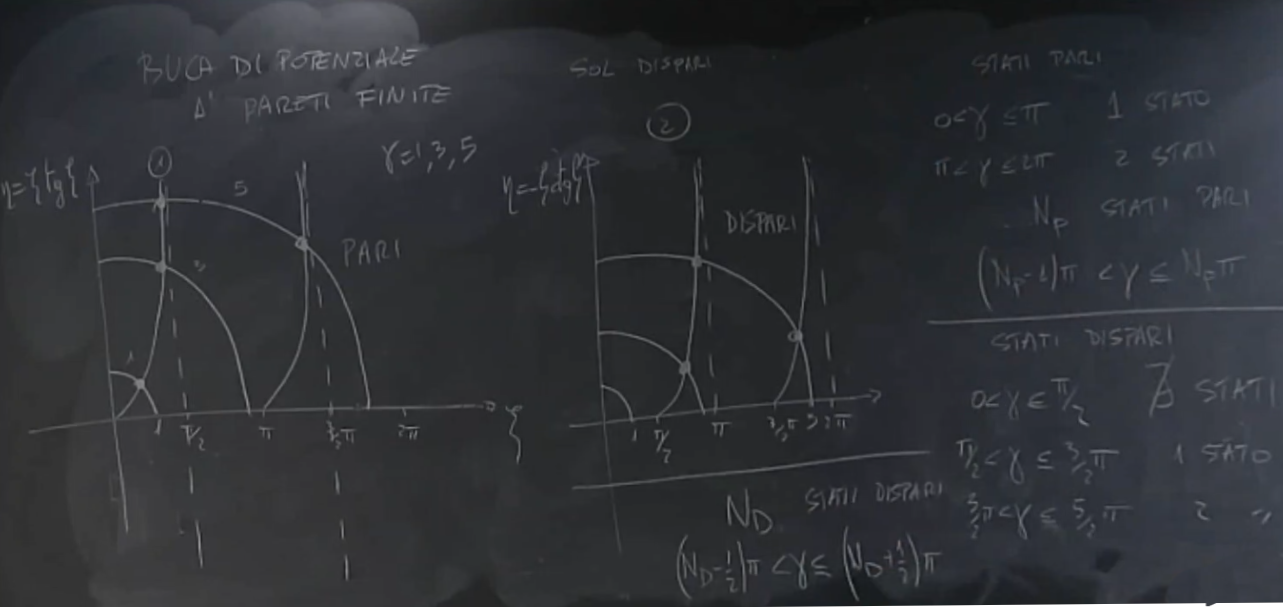 BUCA DI POTENZIALE
A' PARETI FINITE
γ=1,3,5
①
η=ξtgξ
5
3
1
PARI
1 π/2 π 3/2π 2π
ξ
SOL DISPARI
②
η=-ξctgξ
DISPARI
1 π/2 π 3/2π 5 2π
N_D STATI DISPARI
(N_D-1/2)π <γ≤ (N_D+1/2)π
STATI PARI
0<γ≤π 1 STATO
π<γ≤2π 2 STATI
N_P STATI PARI
(N_P-1)π <γ≤ N_Pπ
STATI DISPARI
0<γ≤π/2 ∄ STATI
π/2<γ≤3/2π 1 STATO
3/2π<γ≤5/2π 2 "